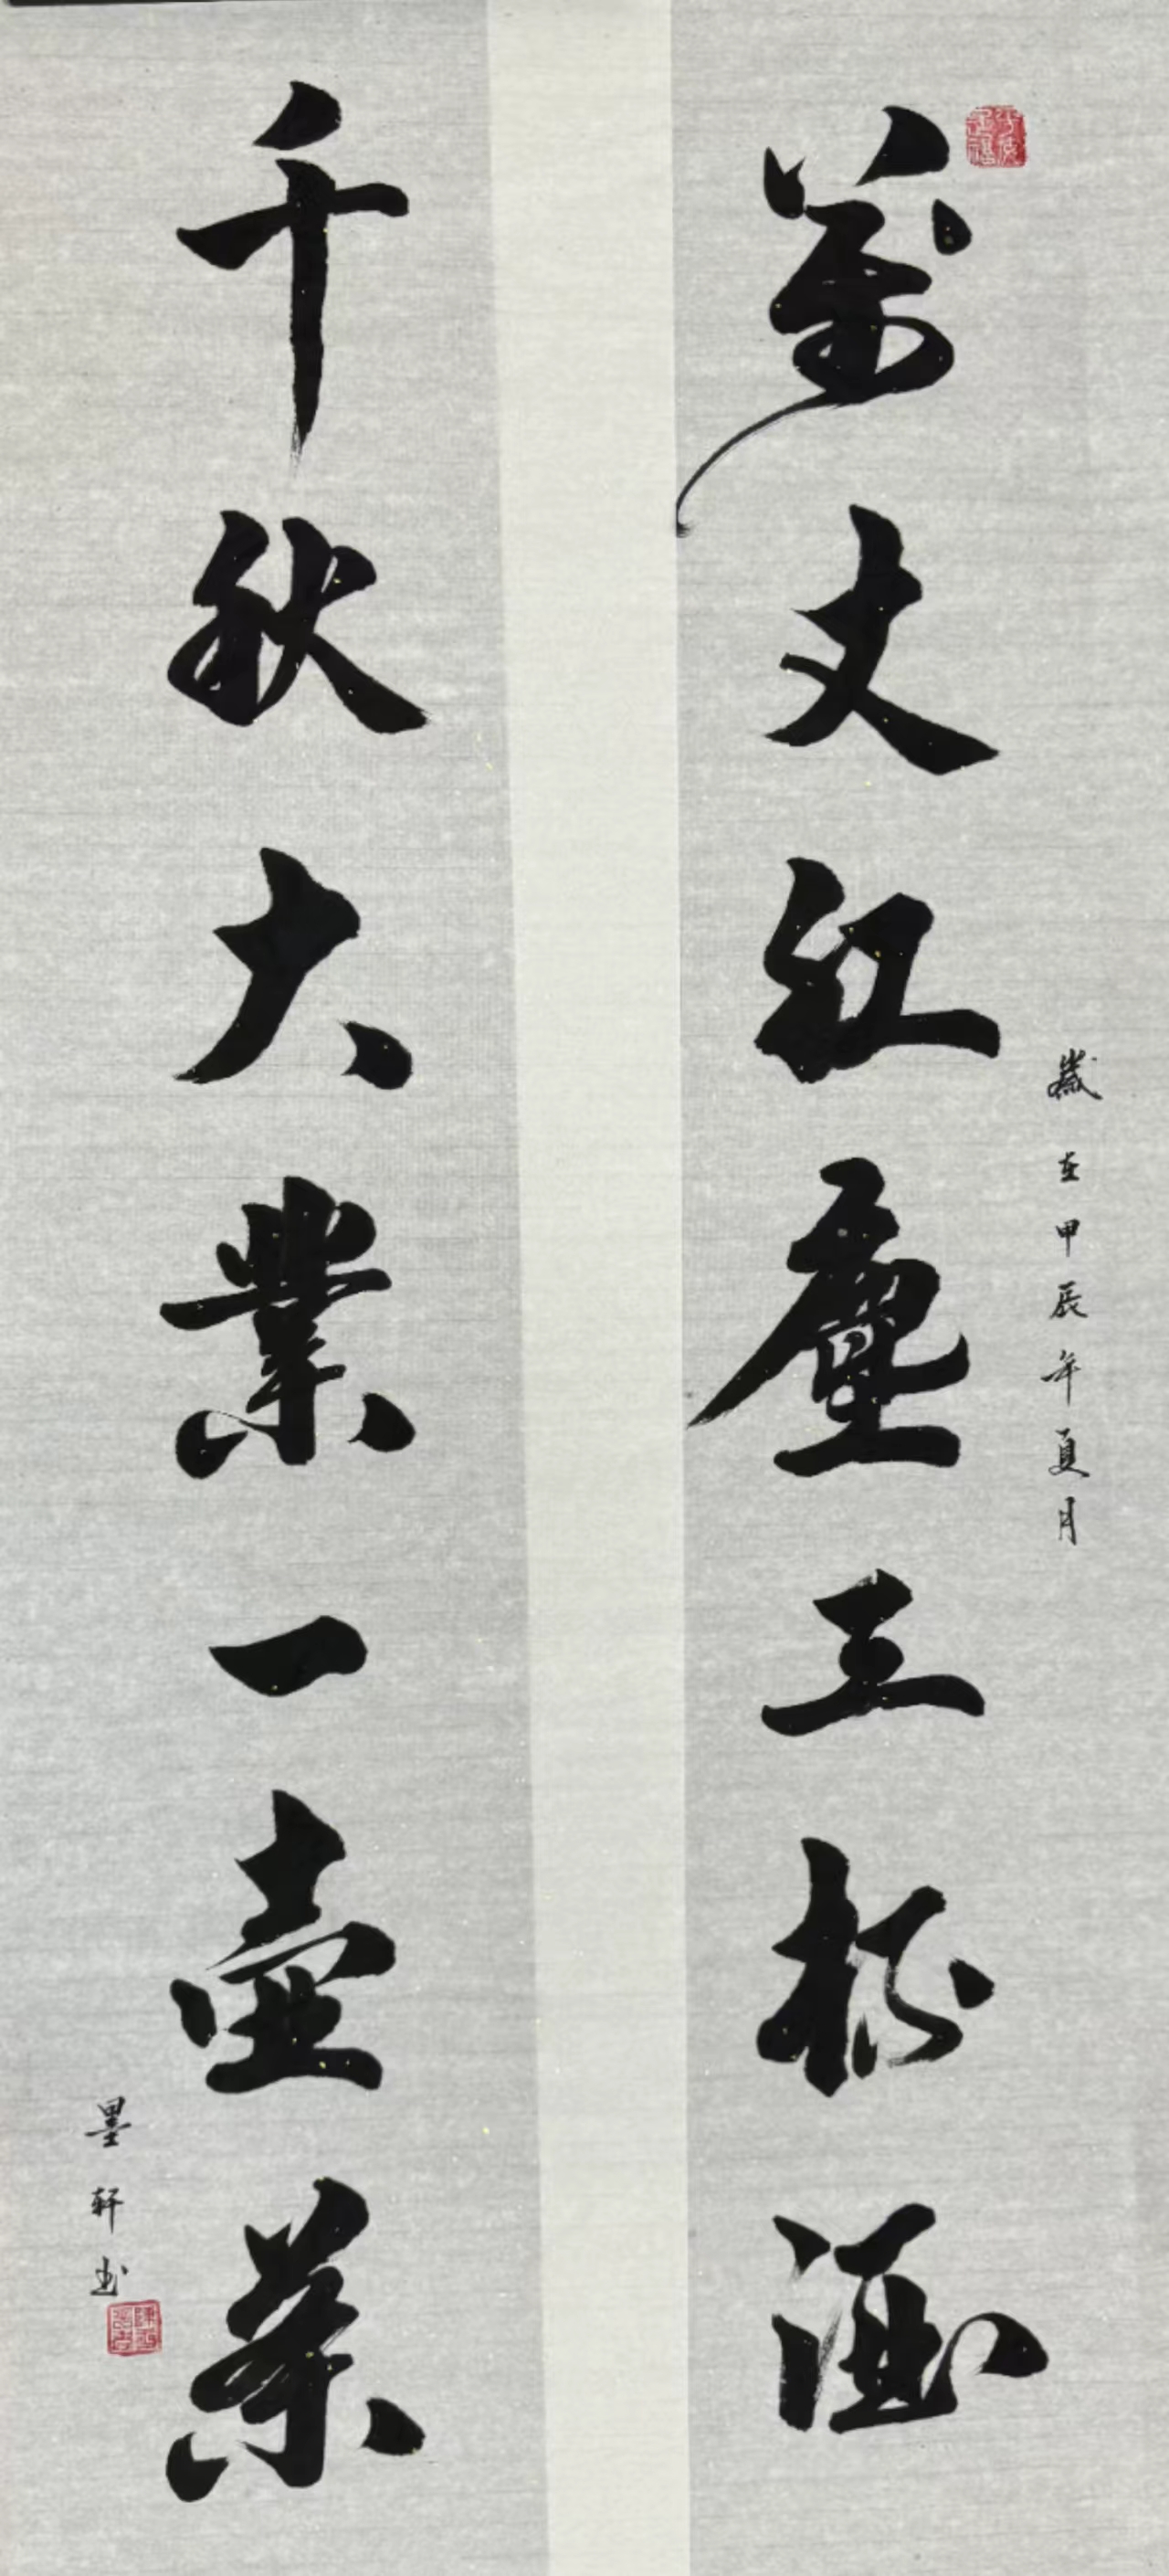 萬丈紅塵三杯酒
歲在甲辰年夏月
千秋大業一壺茶
墨軒书